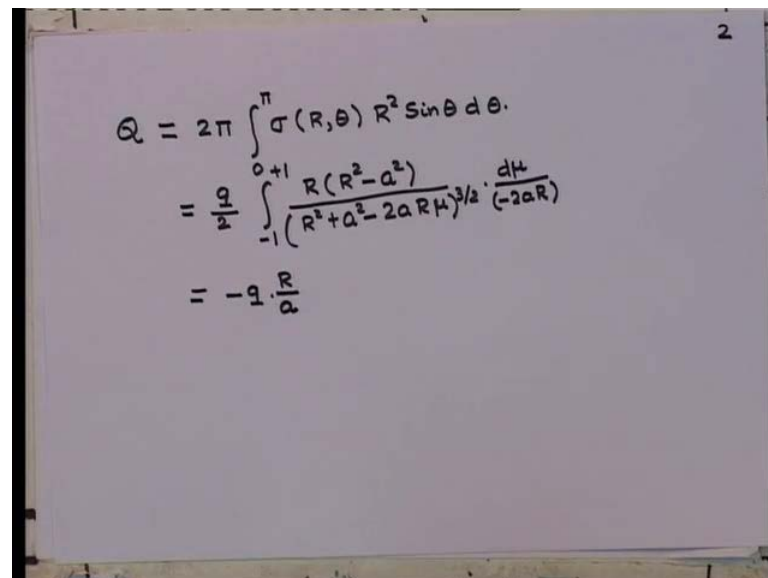 2
Q = 2π ∫₀^π σ(R,θ) R² Sinθ dθ.
= q/2 ∫₋₁^{+1} R(R²-a²)/(R²+a²-2aRμ)^{3/2} · dμ/(-2aR)
= -q · R/a